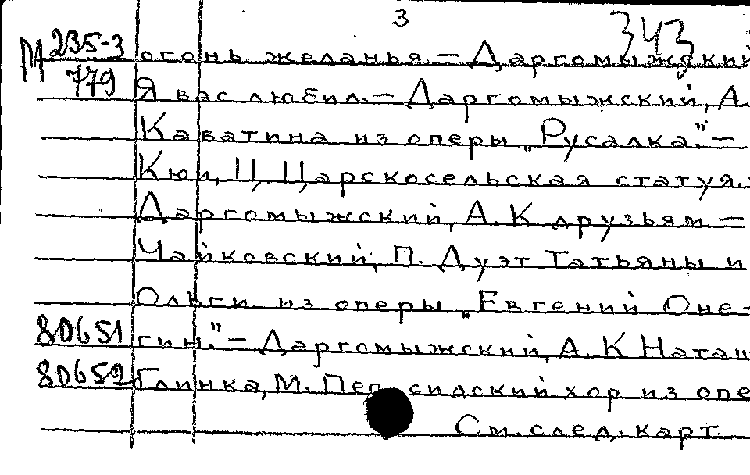 3
343
М 235-3 огонь желанья. – Даргомыжский
779 Я вас любил. – Даргомыжский, А.
Каватина из оперы „Русалка". –
Кюи, Ц. Царскосельская статуя.
Даргомыжский, А. К друзьям –
Чайковский, П. Дуэт Татьяны и
Ольги из оперы „Евгений Оне-
80651 гин." – Даргомыжский, А. К Наташ
80652 Глинка, М. Пер сидский хор из опе
См. след. карт.